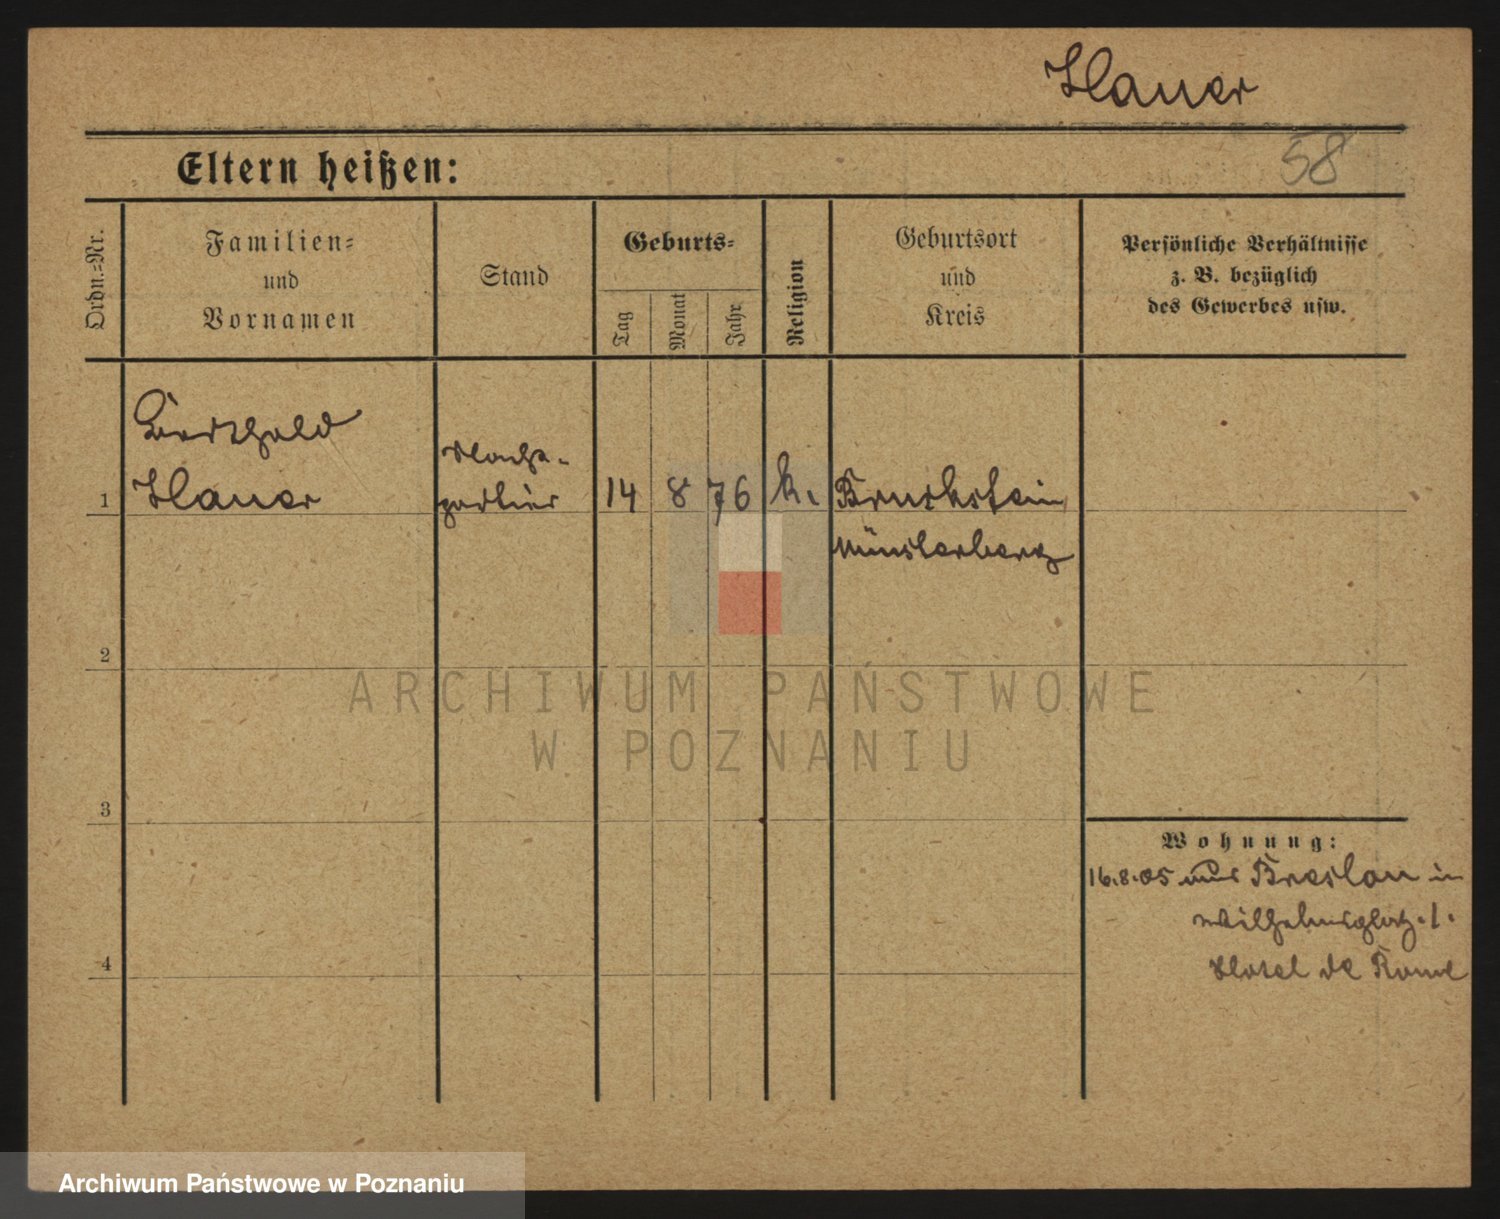 Hauer
58
Eltern heißen:
Ordn.-Nr.
Familien-
und
Vornamen
Stand
Geburts-
Tag
Monat
Jahr
Religion
Geburtsort
und
Kreis
Persönliche Verhältnisse
z. B. bezüglich
des Gewerbes usw.
Berthold
Hauer
1
Nacht-
portier
14 8 76 k.
Bruckstein
Münsterberg
2
ARCHIWUM PAŃSTWOWE
W POZNANIU
3
Wohnung:
16.8.05 aus Breslau in
Wilhelmsplatz 1.
Hotel de Rome
4
Archiwum Państwowe w Poznaniu